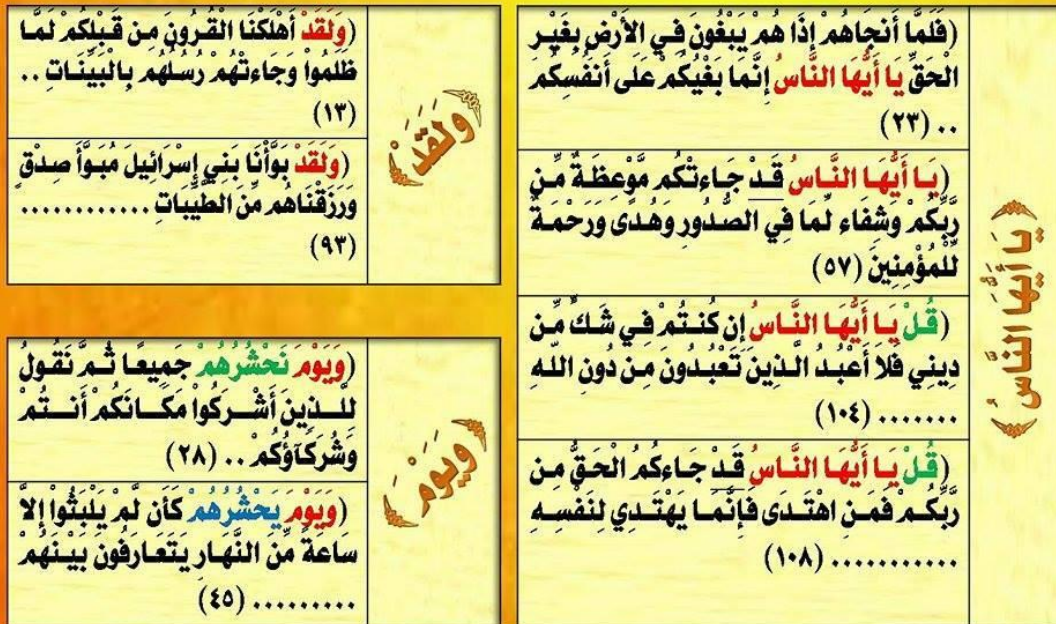 ﴿يَا أَيُّهَا النَّاسُ﴾
(فَلَمَّا أَنجَاهُمْ إِذَا هُمْ يَبْغُونَ فِي الأَرْضِ بِغَيْرِ
الْحَقِّ يَا أَيُّهَا النَّاسُ إِنَّمَا بَغْيُكُمْ عَلَى أَنفُسِكُم
.. (٢٣)
(يَا أَيُّهَا النَّاسُ قَدْ جَاءتْكُم مَّوْعِظَةٌ مِّن
رَّبِّكُمْ وَشِفَاء لِّمَا فِي الصُّدُورِ وَهُدًى وَرَحْمَةٌ
لِّلْمُؤْمِنِينَ (٥٧)
(قُلْ يَا أَيُّهَا النَّاسُ إِن كُنتُمْ فِي شَكٍّ مِّن
دِينِي فَلاَ أَعْبُدُ الَّذِينَ تَعْبُدُونَ مِن دُونِ اللّهِ
....... (١٠٤)
(قُلْ يَا أَيُّهَا النَّاسُ قَدْ جَاءكُمُ الْحَقُّ مِن
رَّبِّكُمْ فَمَنِ اهْتَدَى فَإِنَّمَا يَهْتَدِي لِنَفْسِهِ
........... (١٠٨)
﴿وَلَقَدْ﴾
(وَلَقَدْ أَهْلَكْنَا الْقُرُونَ مِن قَبْلِكُمْ لَمَّا
ظَلَمُوا وَجَاءتْهُمْ رُسُلُهُم بِالْبَيِّنَاتِ ..
(١٣)
(وَلَقَدْ بَوَّأْنَا بَنِي إِسْرَائِيلَ مُبَوَّأَ صِدْقٍ
وَرَزَقْنَاهُم مِّنَ الطَّيِّبَاتِ ............
(٩٣)
﴿وَيَوْمَ﴾
(وَيَوْمَ نَحْشُرُهُمْ جَمِيعًا ثُمَّ نَقُولُ
لِلَّذِينَ أَشْرَكُوا مَكَانَكُمْ أَنتُمْ
وَشُرَكَآؤُكُمْ .. (٢٨)
(وَيَوْمَ يَحْشُرُهُمْ كَأَن لَّمْ يَلْبَثُوا إِلاَّ
سَاعَةً مِّنَ النَّهَارِ يَتَعَارَفُونَ بَيْنَهُمْ
......... (٤٥)